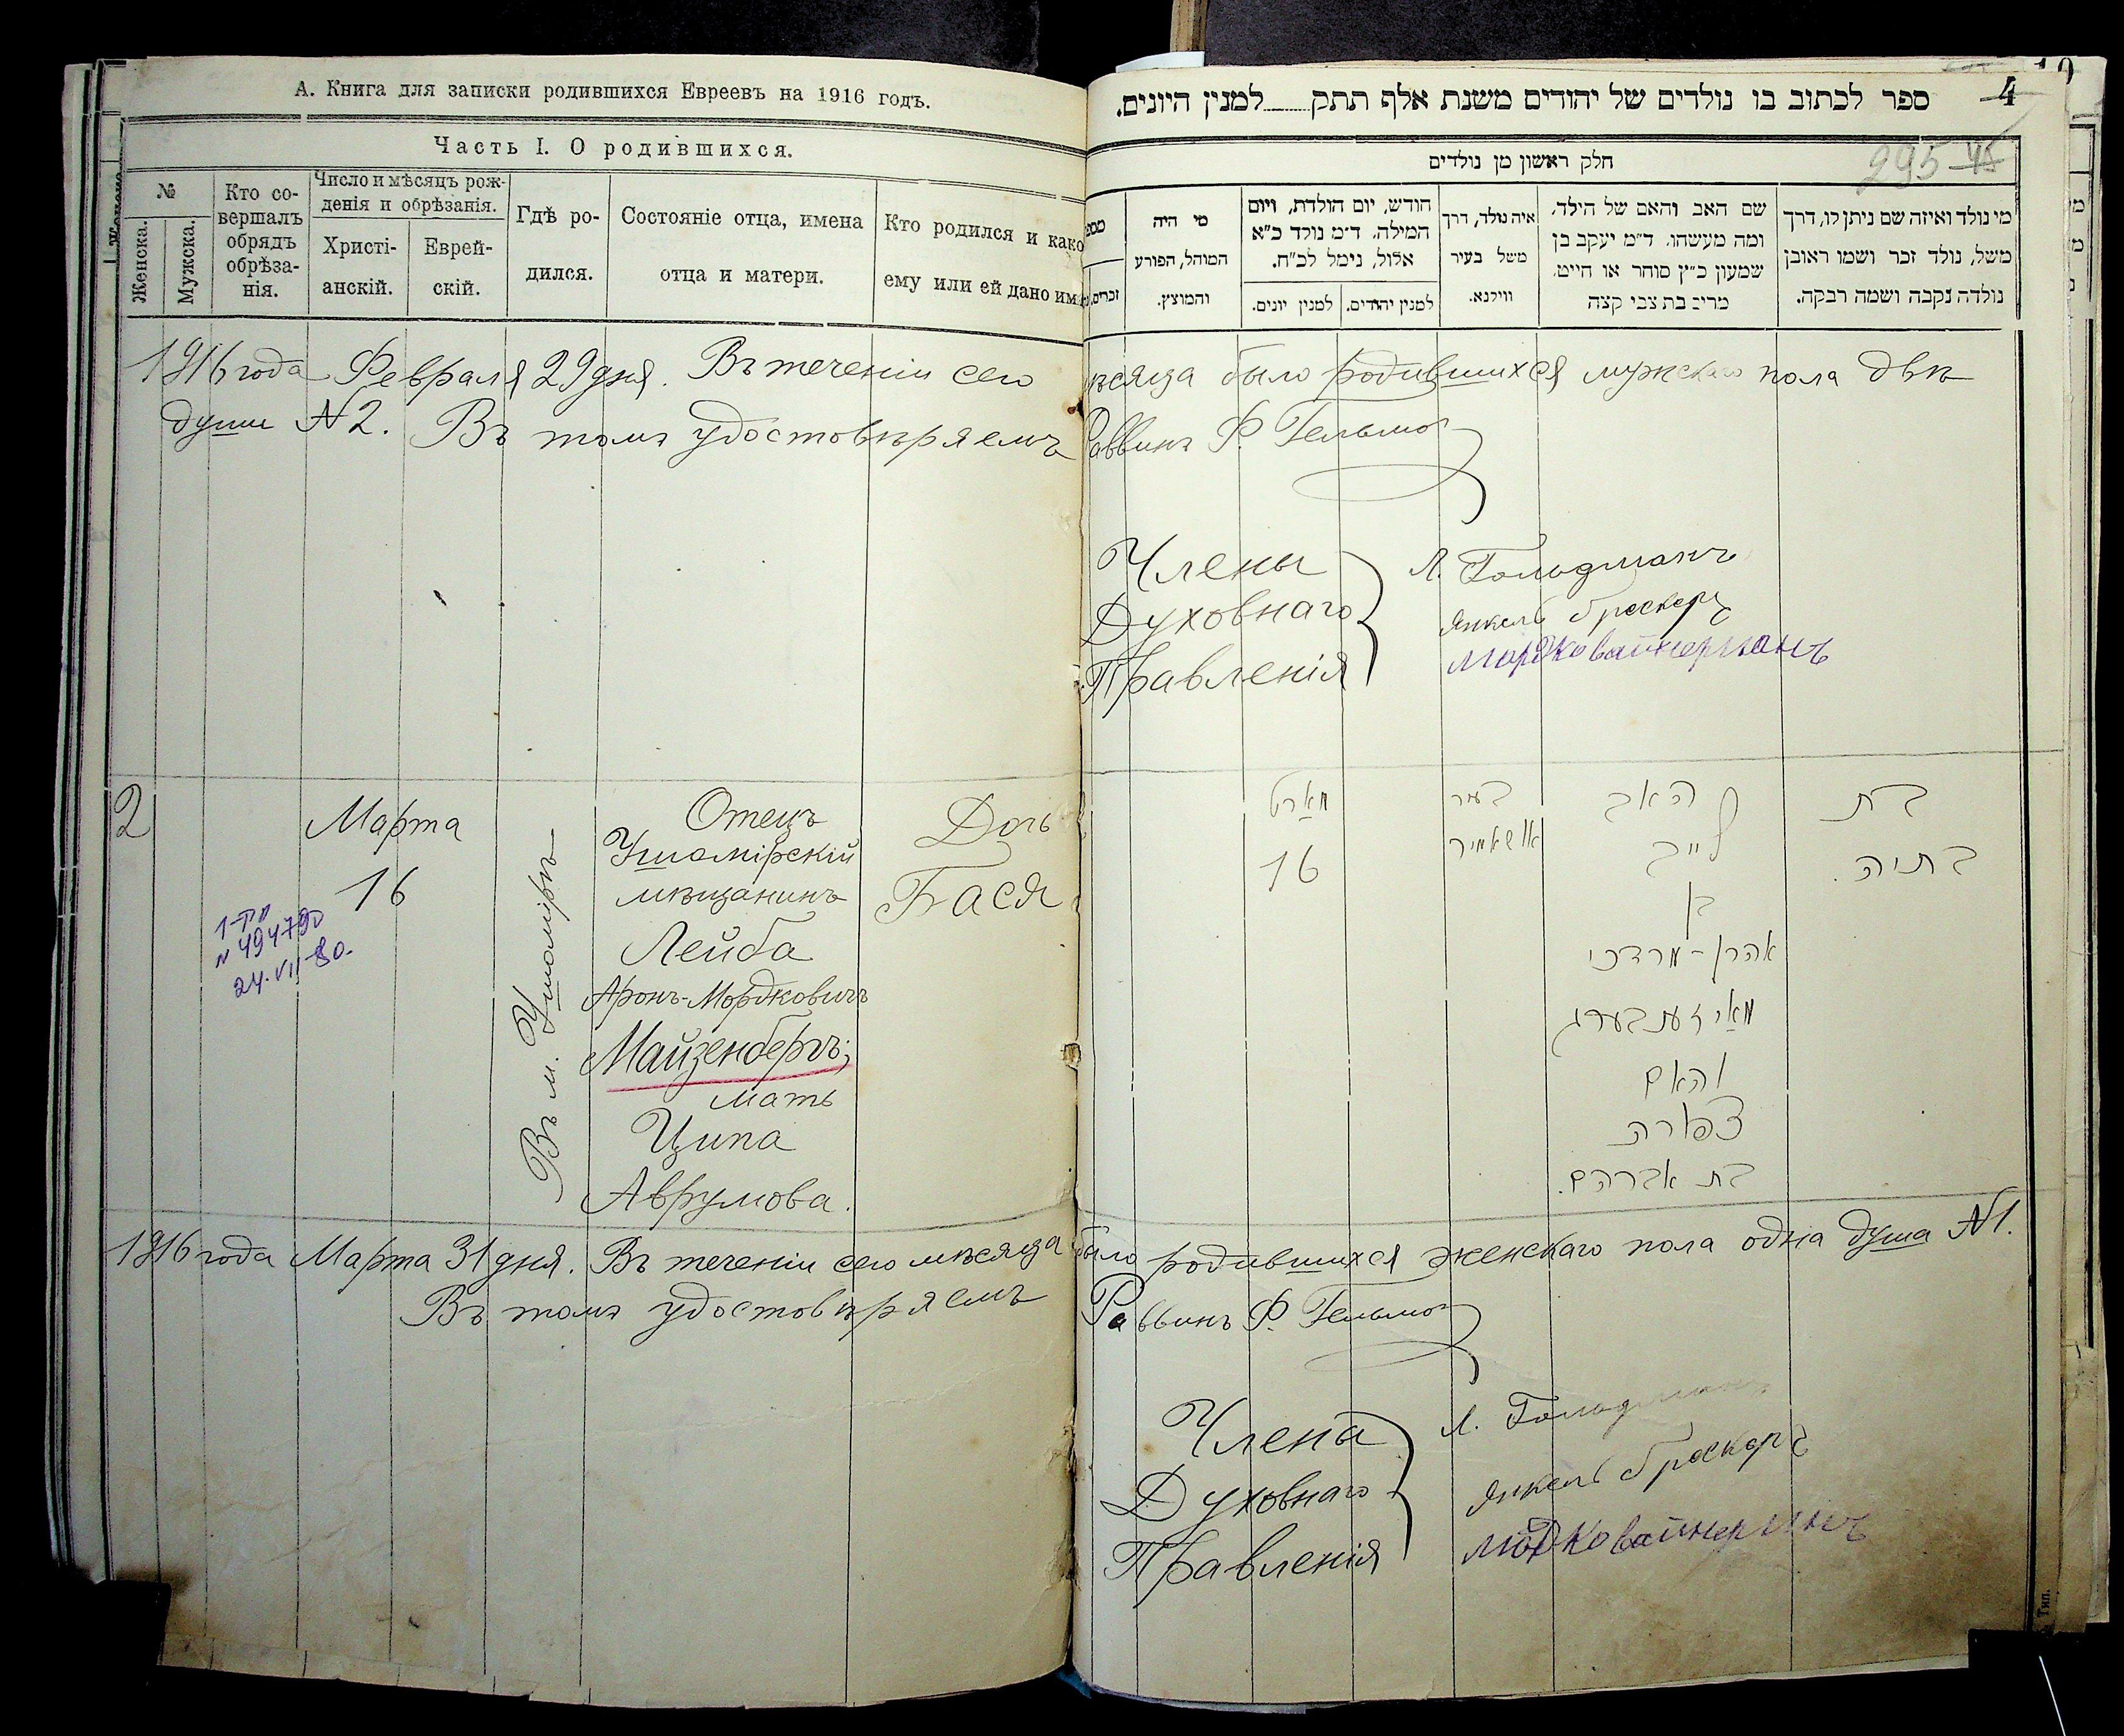 А. Книга для записки родившихся Евреевъ на 1916 годъ.
Часть I. О родившихся.
№
Женска.
Мужска.
Кто со-
вершалъ
обрядъ
обрѣза-
нія.
Число и мѣсяцъ рож-
денія и обрѣзанія.
Христі-
анскій.
Еврей-
скій.
Гдѣ ро-
дился.
Состояніе отца, имена
отца и матери.
Кто родился и како
ему или ей дано им
4
ספר לכתוב בו נולדים של יהודים משנת אלף תתק למנין היונים.
295
חלק ראשון מן נולדים
מי נולד ואיזה שם ניתן לו, דרך
משל, נולד זכר ושמו ראובן
נולדה נקבה ושמה רבקה.
שם האב והאם של הילד,
ומה מעשהו, ד״מ יעקב בן
שמעון כ״ץ סוחר או חייט,
מרים בת צבי קצה
איה נולד, דרך
משל בעיר
ווילנא.
חודש, יום הולדת, ויום
המילה, ד״מ נולד כ״א
אלול, נימל לכ״ח.
למנין יהודים.
למנין יונים.
מי היה
המוהל, הפורע
והמוצץ.
מספ
זכרים.
1916 года Февраля 29 дня. Въ теченіи сего мѣсяца было родившихся мужскаго пола двѣ
души № 2. Въ томъ удостовѣряемъ Раввинъ Ф. Гельмог
Члены
Духовнаго
Правленія
Л. Гольдманъ
Янкель Броскеръ
Мордко Вайнерманъ
2
Марта
16
1-РП
№ 494790
24.VII-80.
Въ м. Ушомірѣ
Отецъ
Ушомірскій
мѣщанинъ
Лейба
Аронъ-Мордковичъ
Майзенбергъ;
мать
Ципа
Аврумова.
Дочь
Бася
מאַרט
16
בעיר
אושאמיר
האב
לייב
בן
אהרן-מרדכי
מאַיזענבערג
והאם
צפורה
בת אברהם.
בת
בתיה.
1916 года Марта 31 дня. Въ теченіи сего мѣсяца было родившихся женскаго пола одна душа № 1.
Въ томъ удостовѣряемъ Раввинъ Ф. Гельмог
Члена
Духовнаго
Правленія
Л. Гольдманъ
Янкель Броскеръ
Мордко Вайнерманъ
Тип.